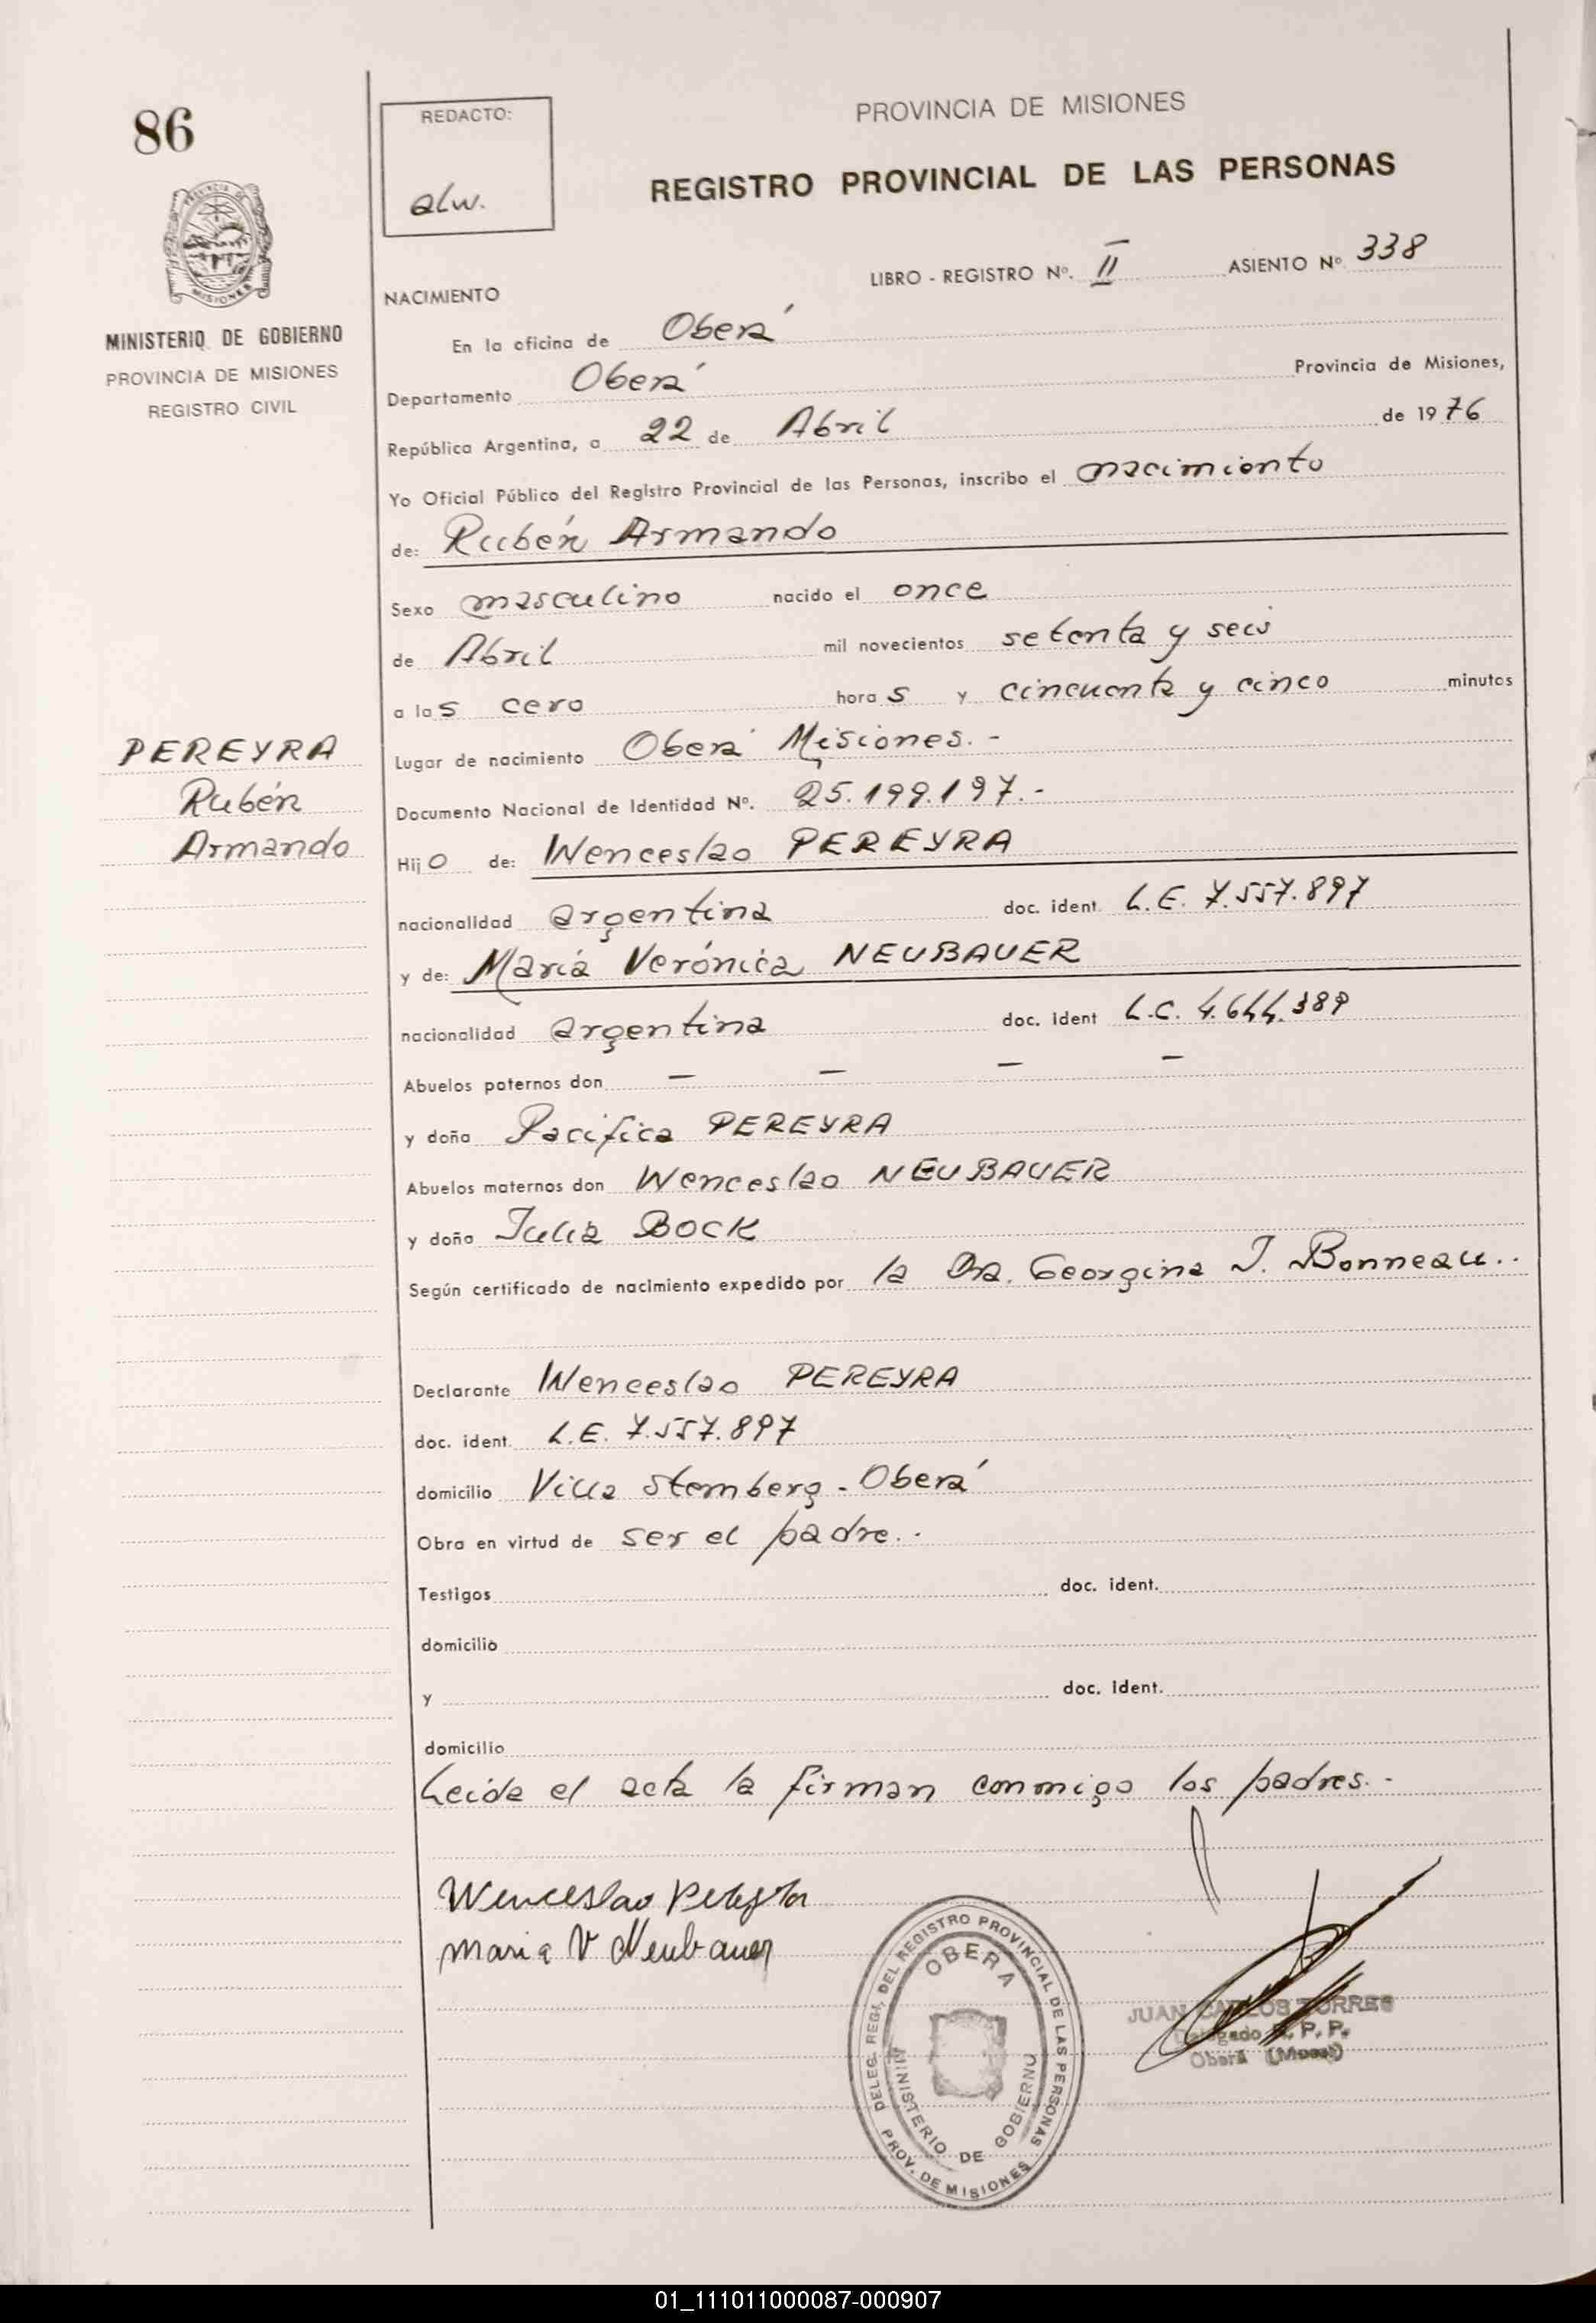 86
REDACTO:
alw.
PROVINCIA DE MISIONES
REGISTRO PROVINCIAL DE LAS PERSONAS
MINISTERIO DE GOBIERNO
PROVINCIA DE MISIONES
REGISTRO CIVIL
LIBRO - REGISTRO Nº. II ASIENTO Nº 338
NACIMIENTO
En la oficina de Oberá
Departamento Oberá Provincia de Misiones,
República Argentina, a 22 de Abril de 1976
Yo Oficial Público del Registro Provincial de las Personas, inscribo el nacimiento
de: Rubén Armando
Sexo masculino nacido el once
de Abril mil novecientos setenta y seis
a las cero horas y cincuenta y cinco minutos
Lugar de nacimiento Oberá Misiones.-
Documento Nacional de Identidad Nº. 25.199.197.-
PEREYRA
Rubén
Armando
Hijo de: Wenceslao PEREYRA
nacionalidad argentina doc. ident. L.E. 7.557.897
y de: María Verónica NEUBAUER
nacionalidad argentina doc. ident L.C. 4.644.389
Abuelos paternos don — — — —
y doña Pacífica PEREYRA
Abuelos maternos don Wenceslao NEUBAUER
y doña Julia BOCK
Según certificado de nacimiento expedido por la Dra. Georgina J. Bonneau..
Declarante Wenceslao PEREYRA
doc. ident. L.E. 7.557.897
domicilio Villa Stemberg - Oberá
Obra en virtud de ser el padre.-
Testigos doc. ident.
domicilio
y doc. ident.
domicilio
Leida el acta la firman conmigo los padres.-
Wenceslao Pereyra
Maria V Neubauer
DELEG. REGI. DEL REGISTRO PROVINCIAL DE LAS PERSONAS
OBERA
MINISTERIO DE GOBIERNO
PROV. DE MISIONES
JUAN CARLOS TORRES
Delegado R. P. P.
Oberá
01_111011000087-000907